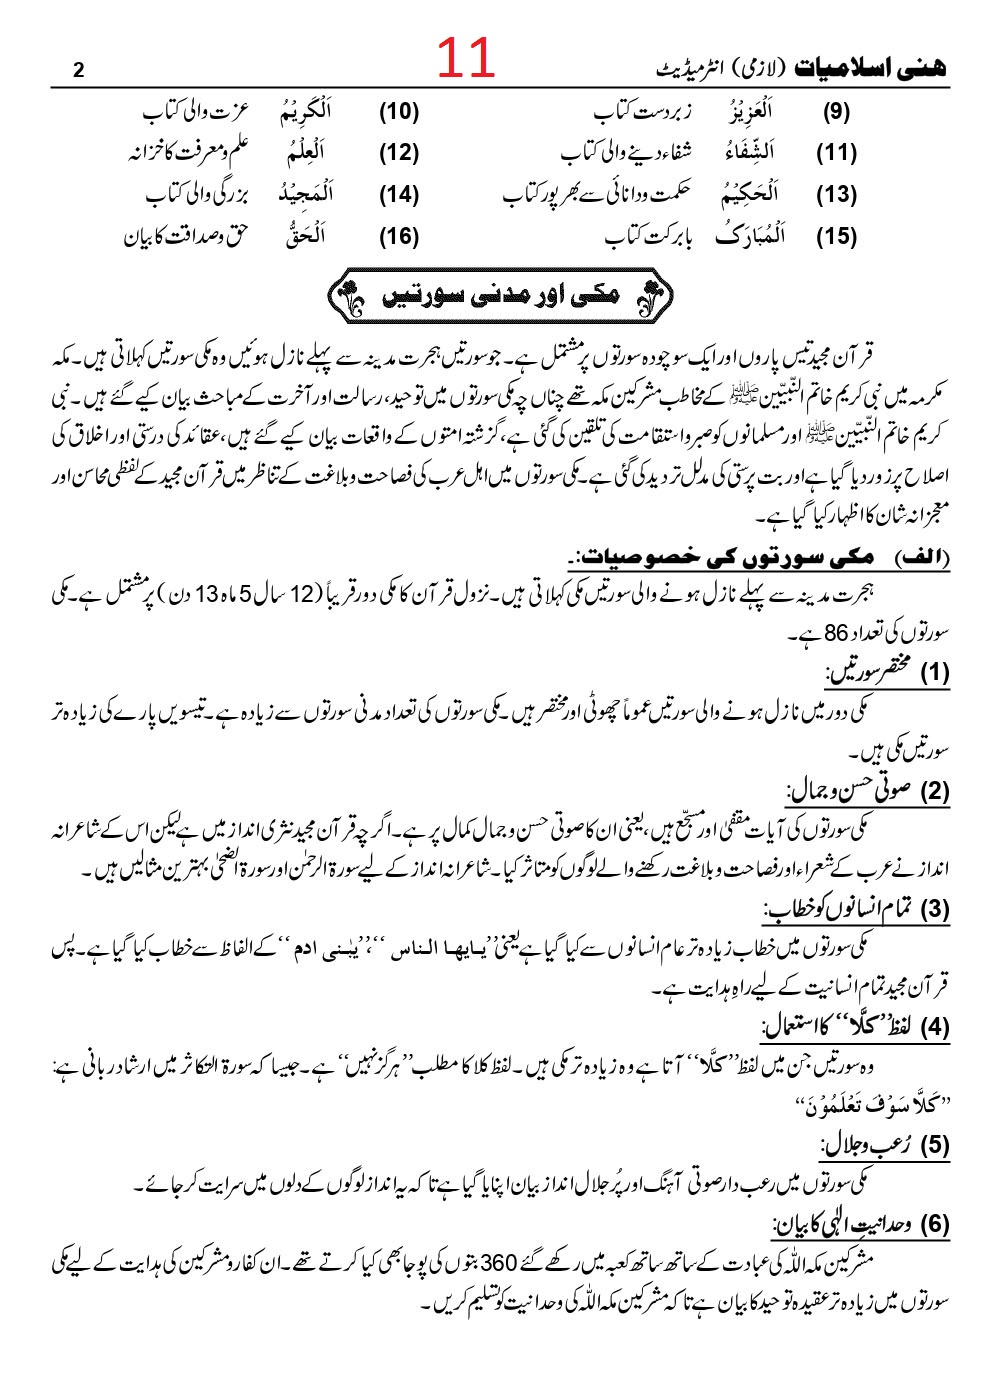 11
ھنی اسلامیات (لازمی) انٹرمیڈیٹ 2
(9) اَلْعَزِیْزُ زبردست کتاب (10) اَلْکَرِیْمُ عزت والی کتاب
(11) اَلشِّفَاءُ شفاء دینے والی کتاب (12) اَلْعِلْمُ علم و معرفت کا خزانہ
(13) اَلْحَکِیْمُ حکمت و دانائی سے بھرپور کتاب (14) اَلْمَجِیْدُ بزرگی والی کتاب
(15) اَلْمُبَارَکُ بابرکت کتاب (16) اَلْحَقُّ حق و صداقت کا بیان
مکی اور مدنی سورتیں
قرآن مجید تیس پاروں اور ایک سو چودہ سورتوں پر مشتمل ہے۔ جو سورتیں ہجرت مدینہ سے پہلے نازل ہوئیں وہ مکی سورتیں کہلاتی ہیں۔ مکہ
مکرمہ میں نبی کریم خاتم النَّبِیّین ﷺ کے مخاطب مشرکین مکہ تھے چناں چہ مکی سورتوں میں توحید، رسالت اور آخرت کے مباحث بیان کیے گئے ہیں۔ نبی
کریم خاتم النَّبِیّین ﷺ اور مسلمانوں کو صبر و استقامت کی تلقین کی گئی ہے، گزشتہ امتوں کے واقعات بیان کیے گئے ہیں، عقائد کی درستی اور اخلاق کی
اصلاح پر زور دیا گیا ہے اور بت پرستی کی مدلل تردید کی گئی ہے۔ مکی سورتوں میں اہل عرب کی فصاحت و بلاغت کے تناظر میں قرآن مجید کے لفظی محاسن اور
معجزانہ شان کا اظہار کیا گیا ہے۔
(الف) مکی سورتوں کی خصوصیات:۔
ہجرت مدینہ سے پہلے نازل ہونے والی سورتیں مکی کہلاتی ہیں۔ نزول قرآن کا مکی دور قریباً (12 سال 5 ماہ 13 دن) پر مشتمل ہے۔ مکی
سورتوں کی تعداد 86 ہے۔
(1) مختصر سورتیں:
مکی دور میں نازل ہونے والی سورتیں عموماً چھوٹی اور مختصر ہیں۔ مکی سورتوں کی تعداد مدنی سورتوں سے زیادہ ہے۔ تیسویں پارے کی زیادہ تر
سورتیں مکی ہیں۔
(2) صوتی حسن و جمال:
مکی سورتوں کی آیات مقفیٰ اور مسجّع ہیں، یعنی ان کا صوتی حسن و جمال کمال پر ہے۔ اگرچہ قرآن مجید نثری انداز میں ہے لیکن اس کے شاعرانہ
انداز نے عرب کے شعراء اور فصاحت و بلاغت رکھنے والے لوگوں کو متاثر کیا۔ شاعرانہ انداز کے لیے سورۃ الرحمٰن اور سورۃ الضحیٰ بہترین مثالیں ہیں۔
(3) تمام انسانوں کو خطاب:
مکی سورتوں میں خطاب زیادہ تر عام انسانوں سے کیا گیا ہے یعنی ’’یایھا الناس‘‘، ’’یٰبنی ادم‘‘ کے الفاظ سے خطاب کیا گیا ہے۔ پس
قرآن مجید تمام انسانیت کے لیے راہِ ہدایت ہے۔
(4) لفظ ’’کلَّا‘‘ کا استعمال:
وہ سورتیں جن میں لفظ ’’کلَّا‘‘ آتا ہے وہ زیادہ تر مکی ہیں۔ لفظ کلا کا مطلب ’’ہرگز نہیں‘‘ ہے۔ جیسا کہ سورۃ التکاثر میں ارشاد ربانی ہے:
’’کَلَّا سَوْفَ تَعْلَمُوْنَ‘‘
(5) رُعب و جلال:
مکی سورتوں میں رعب دار صوتی آہنگ اور پُر جلال انداز بیان اپنایا گیا ہے تاکہ یہ انداز لوگوں کے دلوں میں سرایت کر جائے۔
(6) وحدانیتِ الٰہی کا بیان:
مشرکین مکہ اللہ کی عبادت کے ساتھ ساتھ کعبہ میں رکھے گئے 360 بتوں کی پوجا بھی کیا کرتے تھے۔ ان کفار و مشرکین کی ہدایت کے لیے مکی
سورتوں میں زیادہ تر عقیدہ توحید کا بیان ہے تاکہ مشرکین مکہ اللہ کی وحدانیت کو تسلیم کریں۔